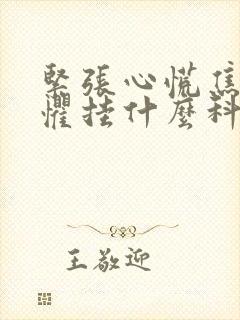 緊張心慌焦
懼挂什麼科
王敬迎